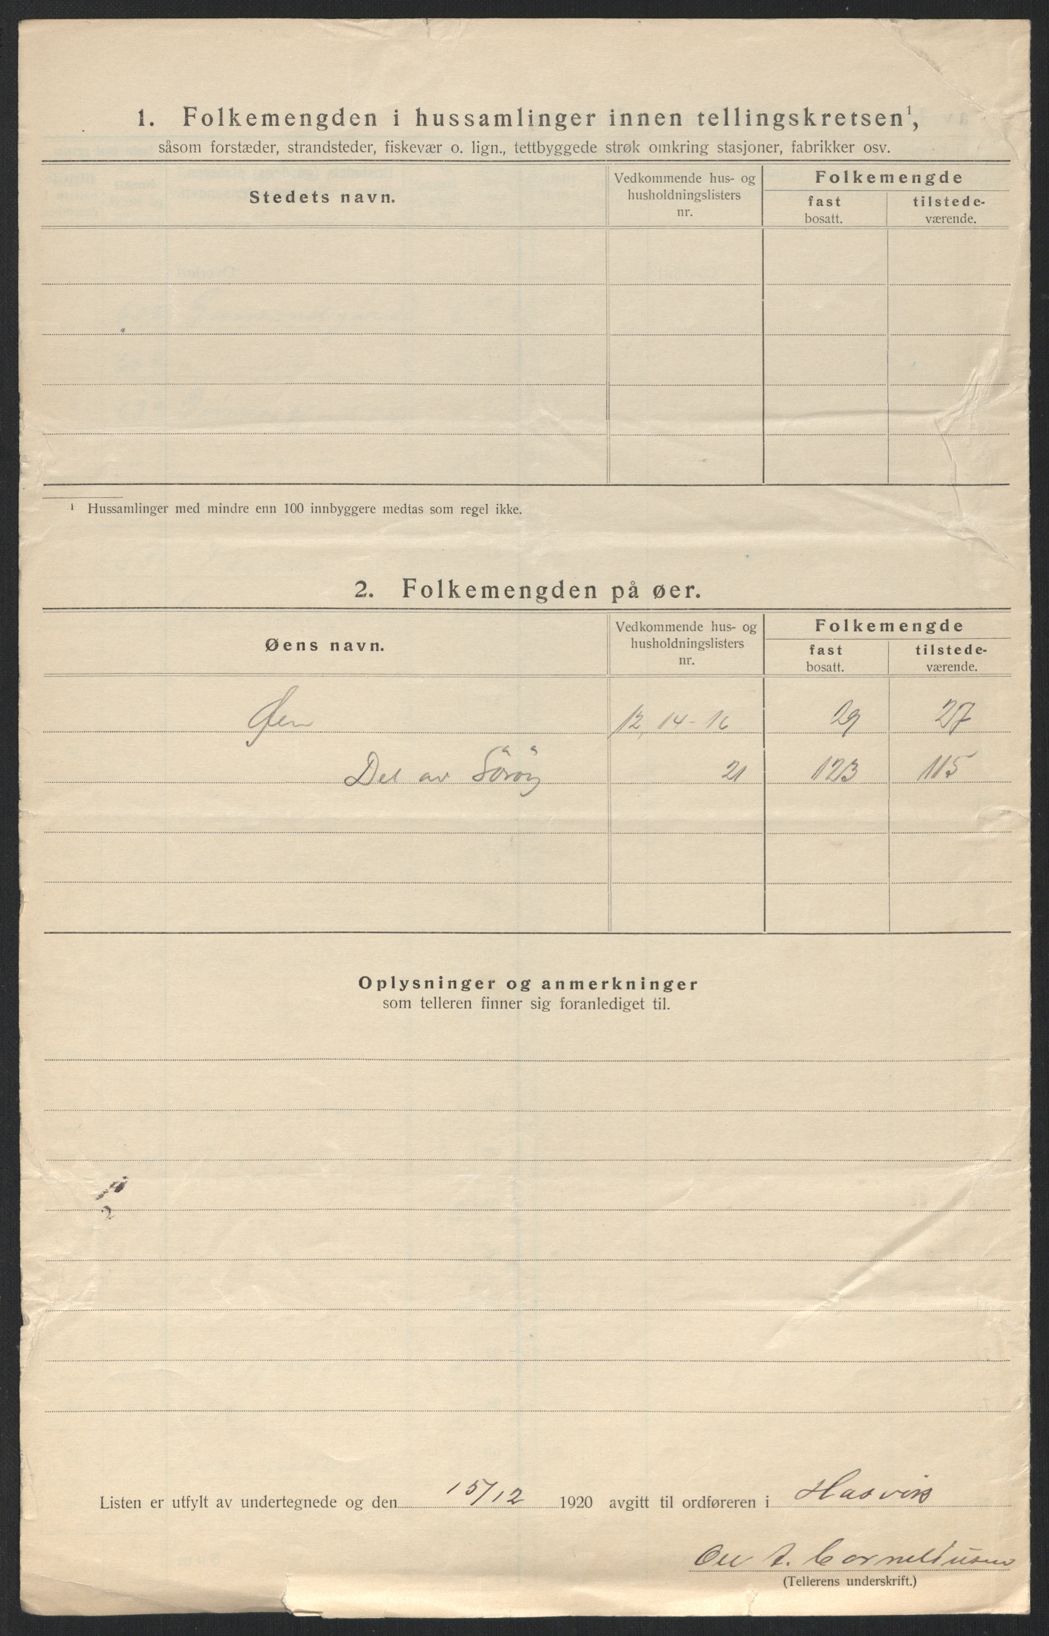 1. Folkemengden i hussamlinger innen tellingskretsen¹,
såsom forstæder, strandsteder, fiskevær o. lign., tettbyggede strøk omkring stasjoner, fabrikker osv.
Stedets navn.
Vedkommende hus- og husholdningslisters nr.
Folkemengde
fast bosatt.
tilstede-værende.
¹ Hussamlinger med mindre enn 100 innbyggere medtas som regel ikke.
2. Folkemengden på øer.
Øens navn.
Vedkommende hus- og husholdningslisters nr.
Folkemengde
fast bosatt.
tilstede-værende.
Øen 12, 14-16 29 27
Del av Söröy 21 123 115
Oplysninger og anmerkninger
som telleren finner sig foranlediget til.
2
Listen er utfylt av undertegnede og den 15/12 1920 avgitt til ordføreren i Hasvik
Ole A. Corneliussen
(Tellerens underskrift.)